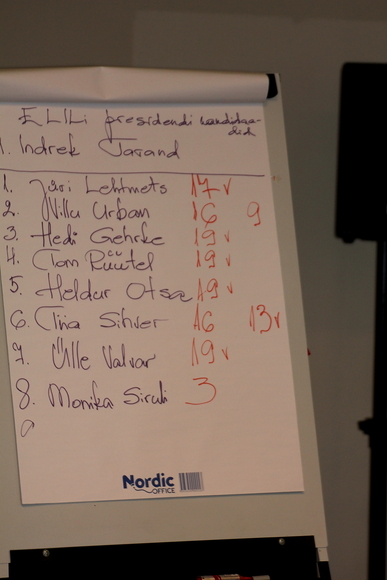 ELILi presidendi kandidaa-
did
1. Indrek Tarand
1. Jüri Lehtmets 17 v
2. Villu Urban 16 9
3. Hedi Gehrke 19 v
4. Tom Rüütel 19 v
5. Heldur Otsa 19 v
6. Tiia Sihver 16 13 v
7. Ülle Valvar 19 v
8. Monika 3
Nordic
OFFICE